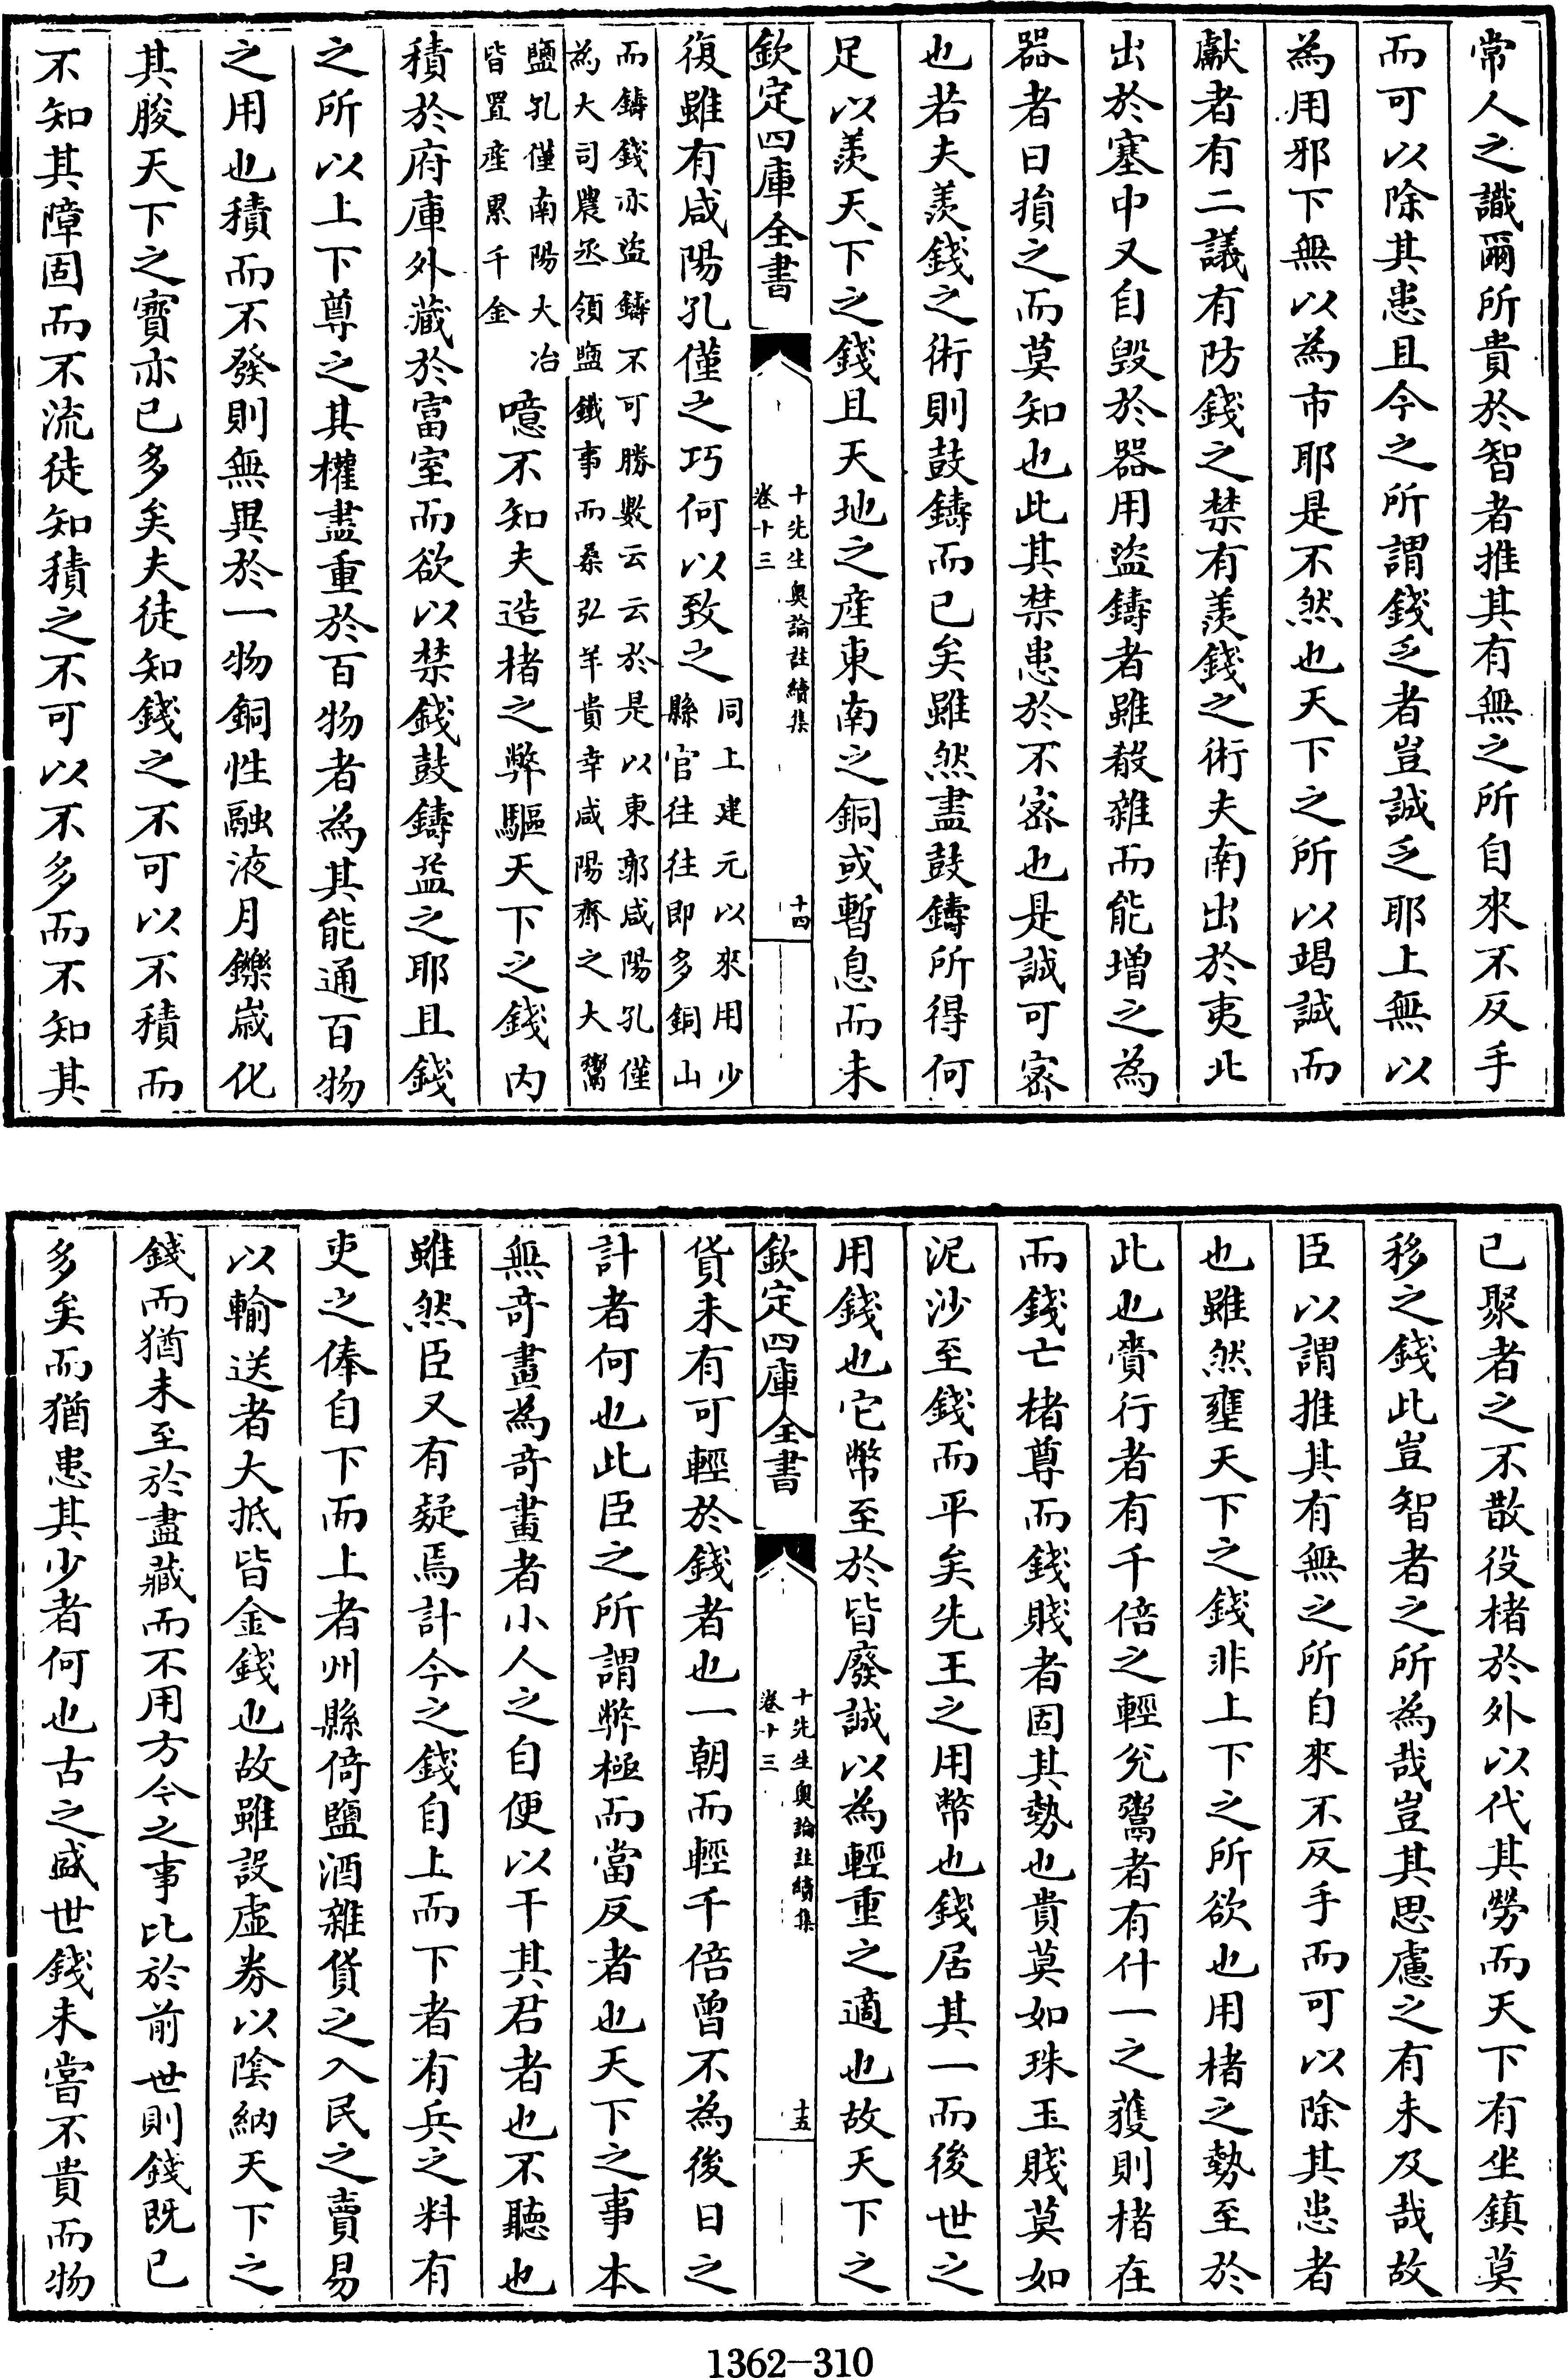 常人之識爾所貴於智者推其有無之所自來不反手
而可以除其患且今之所謂錢乏者豈誠乏耶上無以
為用邪下無以為市耶是不然也天下之所以竭誠而
獻者有二議有防錢之禁有羨錢之術夫南出於夷北
出於塞中又自毀於器用盜鑄者雖殽雜而能增之為
器者日損之而莫知也此其禁患於不宻也是誠可宻
也若夫羨錢之術則鼓鑄而已矣雖然盡鼓鑄所得何
足以羨天下之錢且天地之産東南之銅或暫息而未
欽定四庫全書
十先生奧論註續集
卷十三
十四
復雖有咸陽孔僅之巧何以致之同上建元以來用少
縣官往往即多銅山
而鑄錢亦盜鑄不可勝數云云於是以東郭咸陽孔僅
為大司農丞領鹽鐵事而桑弘羊貴幸咸陽齊之大鬻
鹽孔僅南陽大冶
皆置産累千金
噫不知夫造楮之弊驅天下之錢内
積於府庫外藏於富室而欲以禁錢鼓鑄益之耶且錢
之所以上下尊之其權盡重於百物者為其能通百物
之用也積而不發則無異於一物銅性融液月鑠嵗化
其朘天下之寳亦已多矣夫徒知錢之不可以不積而
不知其障固而不流徒知積之不可以不多而不知其
已聚者之不散役楮於外以代其勞而天下有坐鎮莫
移之錢此豈智者之所為哉豈其思慮之有未及哉故
臣以謂推其有無之所自來不反手而可以除其患者
也雖然壅天下之錢非上下之所欲也用楮之勢至於
此也賫行者有千倍之輕兊鬻者有什一之獲則楮在
而錢亡楮尊而錢賤者固其勢也貴莫如珠玉賤莫如
泥沙至錢而平矣先王之用幣也錢居其一而後世之
用錢也它幣至於皆廢誠以為輕重之適也故天下之
欽定四庫全書
十先生奧論註續集
卷十三
十五
貨未有可輕於錢者也一朝而輕千倍曾不為後日之
計者何也此臣之所謂弊極而當反者也天下之事本
無奇畫為奇畫者小人之自便以干其君者也不聽也
雖然臣又有疑焉計今之錢自上而下者有兵之料有
吏之俸自下而上者州縣倚鹽酒雜貨之入民之賣易
以輸送者大抵皆金錢也故雖設虚劵以陰納天下之
錢而猶未至於盡藏而不用方今之事比於前世則錢既已
多矣而猶患其少者何也古之盛世錢未嘗不貴而物
1362-310